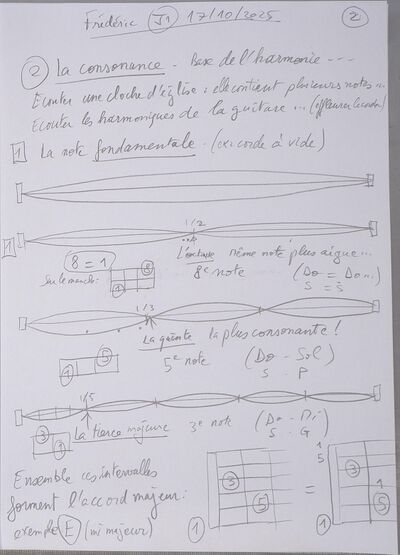 Frédéric J1 17/10/2025 2
2 La consonance - Base de l'harmonie ---
Ecouter une cloche d'église : elle contient plusieurs notes...
Ecouter les harmoniques de la guitare ... (effleurer la corde)
1 La note fondamentale - (ex: corde à vide)
1/2
1 L'octave même note plus aigue...
8 = 1 8e note (Do = Do...)
Sur le manche: 8 1 S = S
1/3
La quinte la plus consonante !
1 5 5e note (Do - Sol)
S - P
1/5
3 1 La tierce majeure 3e note (Do - Mi)
S - G
Ensemble ces intervalles
forment l'accord majeur:
exemple E (mi majeur)
3 5 1 = 1 5 3 5 1